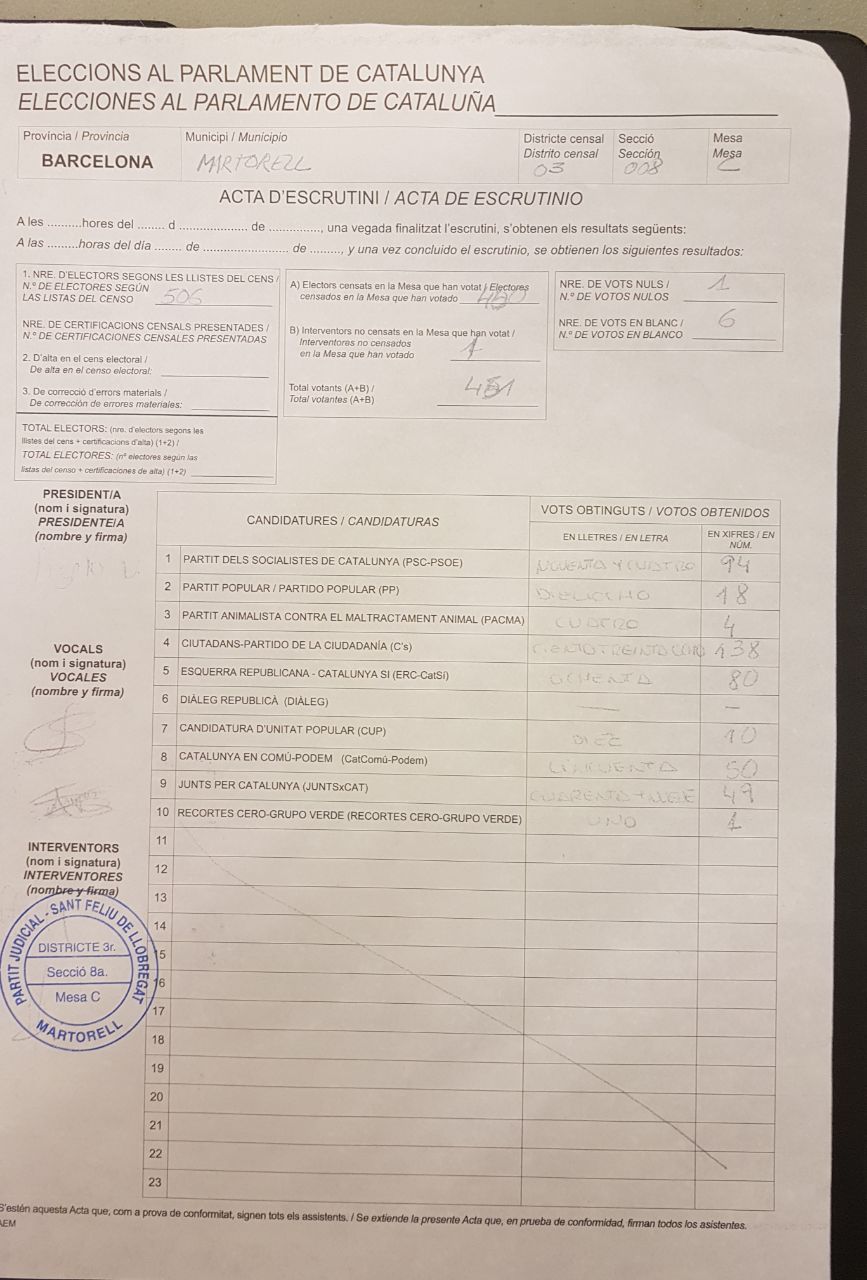 ELECCIONS AL PARLAMENT DE CATALUNYA
ELECCIONES AL PARLAMENTO DE CATALUÑA
Provincia / Provincia
BARCELONA
Municipi / Municipio
MARTORELL
Districte censal
Distrito censal
03
Secció
Sección
008
Mesa
Mesa
C
ACTA D'ESCRUTINI / ACTA DE ESCRUTINIO
A les .........hores del ........ d .................... de ..............., una vegada finalitzat l'escrutini, s'obtenen els resultats següents:
A las .........horas del día ........ de ......................... de ........., y una vez concluido el escrutinio, se obtienen los siguientes resultados:
1. NRE. D'ELECTORS SEGONS LES LLISTES DEL CENS /
N.º DE ELECTORES SEGÚN
LAS LISTAS DEL CENSO 506
NRE. DE CERTIFICACIONS CENSALS PRESENTADES /
N.º DE CERTIFICACIONES CENSALES PRESENTADAS
2. D'alta en el cens electoral /
De alta en el censo electoral:
3. De correcció d'errors materials /
De corrección de errores materiales:
TOTAL ELECTORS: (nre. d'electors segons les
llistes del cens + certificacions d'alta) (1+2) /
TOTAL ELECTORES: (nº electores según las
listas del censo + certificaciones de alta) (1+2)
A) Electors censats en la Mesa que han votat / Electores
censados en la Mesa que han votado
B) Interventors no censats en la Mesa que han votat /
Interventores no censados
en la Mesa que han votado 1
Total votants (A+B) /
Total votantes (A+B) 451
NRE. DE VOTS NULS /
N.º DE VOTOS NULOS 1
NRE. DE VOTS EN BLANC /
N.º DE VOTOS EN BLANCO 6
PRESIDENT/A
(nom i signatura)
PRESIDENTE/A
(nombre y firma)
VOCALS
(nom i signatura)
VOCALES
(nombre y firma)
INTERVENTORS
(nom i signatura)
INTERVENTORES
(nombre y firma)
PARTIT JUDICIAL - SANT FELIU DE LLOBREGAT
DISTRICTE 3r.
Secció 8a.
Mesa C
MARTORELL
CANDIDATURES / CANDIDATURAS
VOTS OBTINGUTS / VOTOS OBTENIDOS
EN LLETRES / EN LETRA
EN XIFRES / EN
NÚM.
1 PARTIT DELS SOCIALISTES DE CATALUNYA (PSC-PSOE) Y CUATRO 94
2 PARTIT POPULAR / PARTIDO POPULAR (PP) DIECIOCHO 18
3 PARTIT ANIMALISTA CONTRA EL MALTRACTAMENT ANIMAL (PACMA) CUATRO 4
4 CIUTADANS-PARTIDO DE LA CIUDADANÍA (C's) CIENTO TREINTA 138
5 ESQUERRA REPUBLICANA - CATALUNYA SI (ERC-CatSí) OCHENTA 80
6 DIÀLEG REPUBLICÀ (DIÀLEG) — –
7 CANDIDATURA D'UNITAT POPULAR (CUP) DIEZ 10
8 CATALUNYA EN COMÚ-PODEM (CatComú-Podem) CINCUENTA 50
9 JUNTS PER CATALUNYA (JUNTSxCAT) 49
10 RECORTES CERO-GRUPO VERDE (RECORTES CERO-GRUPO VERDE) UNO 1
11
12
13
14
15
16
17
18
19
20
21
22
23
S'estén aquesta Acta que, com a prova de conformitat, signen tots els assistents. / Se extiende la presente Acta que, en prueba de conformidad, firman todos los asistentes.
AEM